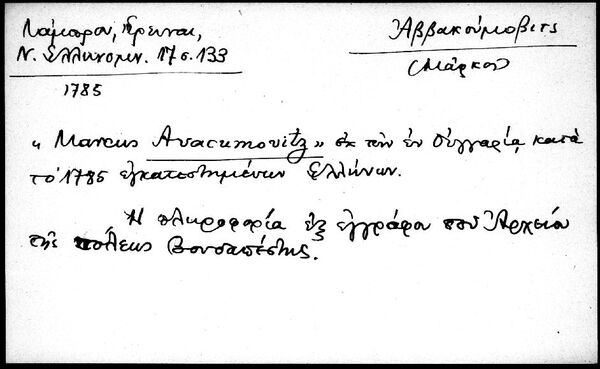 Λάμπρου, Ἔρευναι,
Ν. Ἑλληνομν. 17 σ. 133
1785
Ἀββακούμοβιτς
(Μάρκος)
« Marcus Avacumovitz » ἐκ τῶν ἐν Οὑγγαρίᾳ κατὰ
τὸ 1785 ἐγκατεστημένων Ἑλλήνων.
Ἡ πληροφορία ἐξ ἐγγράφου τοῦ Ἀρχείου
τῆς πόλεως Βουδαπέστης.